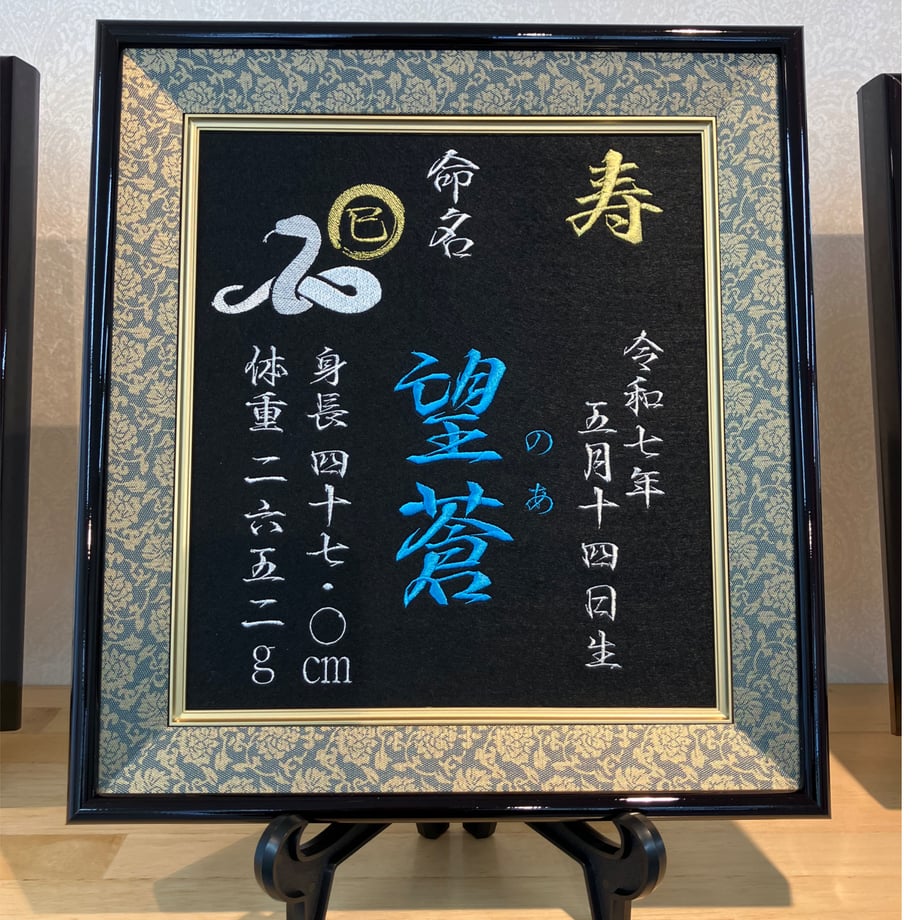 寿
令和七年
五月十四日生
命名
のあ
望蒼
巳
身長 四十七・〇cm
体重 二六五二g